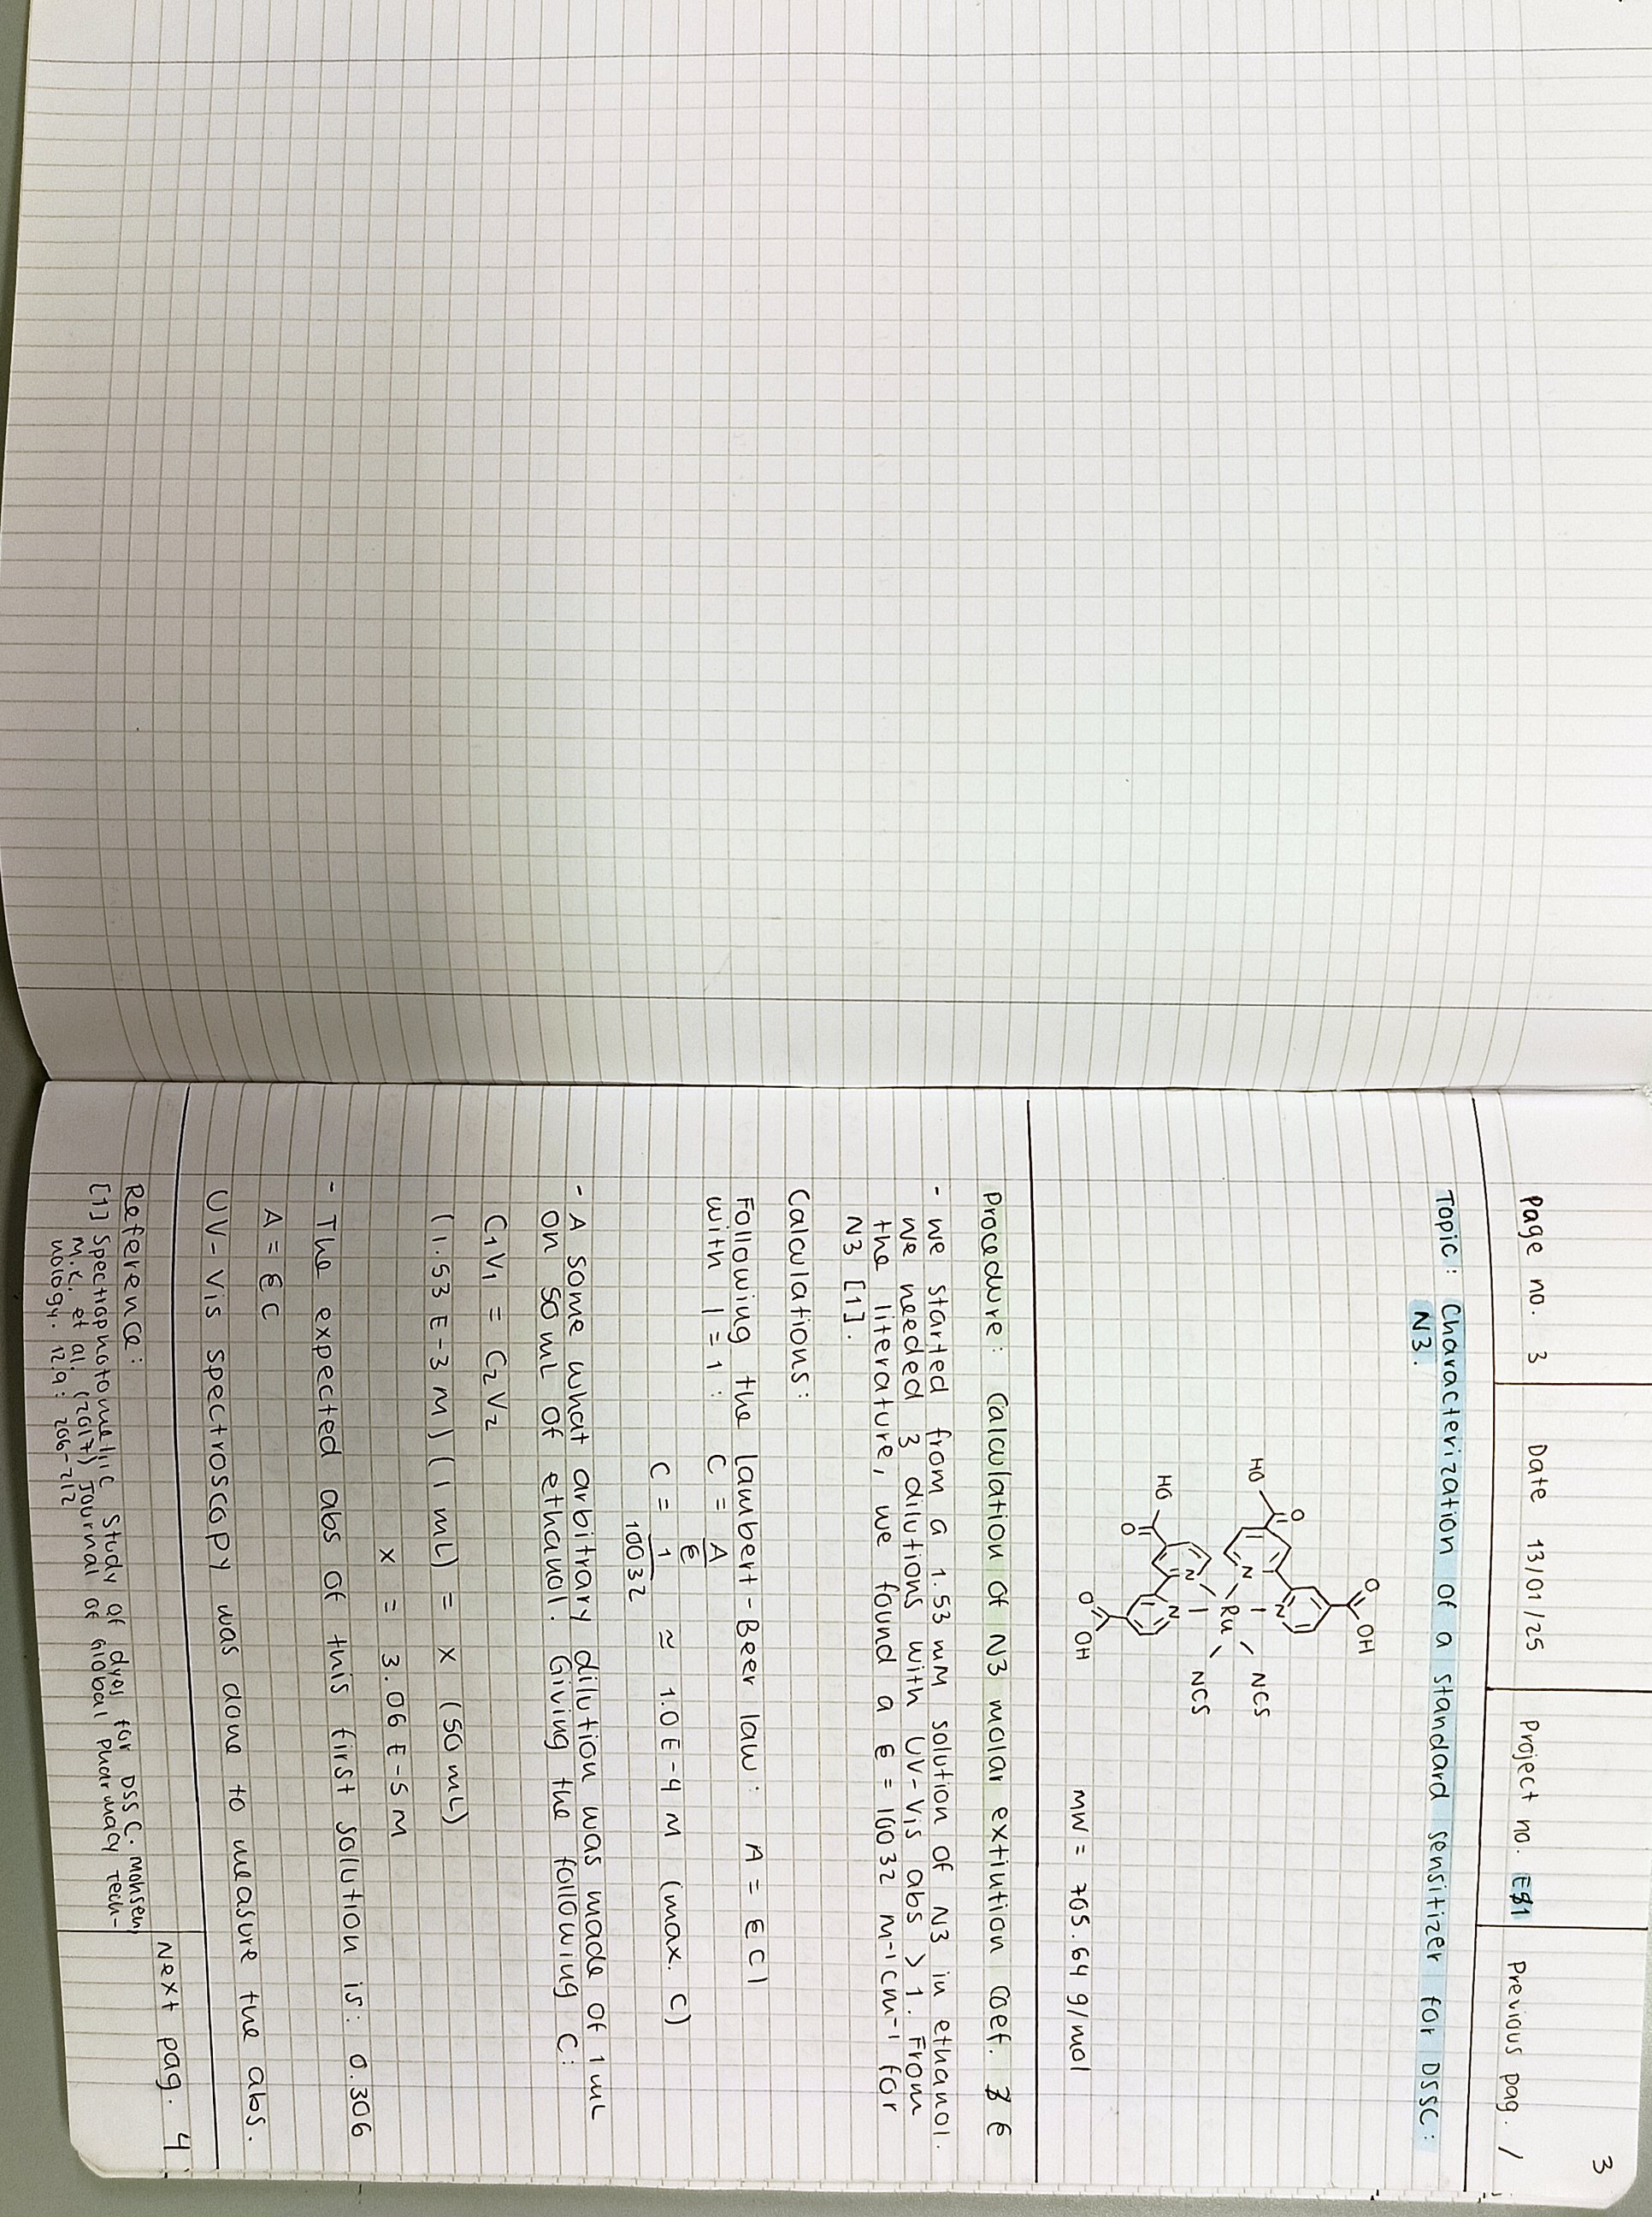 3
Page no. 3 Date 13/01/25 Project no. E01 Previous pag. /
Topic: Characterization of a standard sensitizer for DSSC:
N3.
O OH
HO O
N N
Ru
N N
NCS
NCS
HO O
O OH
MW = 705.64 g/mol
Procedure: Calculation of N3 molar extintion coef. ε
- We started from a 1.53 mM solution of N3 in ethanol.
We needed 3 dilutions with UV-Vis abs > 1. From
the literature, we found a ε = 10032 M⁻¹cm⁻¹ for
N3 [1].
Calculations:
Following the lambert-Beer law: A = εCl
with l = 1: C = A/ε
C = 1/10032 ≈ 1.0E-4 M (max. C)
- A some what arbitrary dilution was made of 1 mL
on 50 mL of ethanol. Giving the following C:
C₁V₁ = C₂V₂
(1.53E-3 M)(1 mL) = x (50 mL)
x = 3.06E-5 M
- The expected abs of this first solution is: 0.306
A = εC
UV-Vis spectroscopy was done to measure the abs.
Reference:
[1] Spectrophotometric Study of dyes for DSSC. Mohsen,
M.K. et al. (2017) Journal of Global Pharmacy Tech-
nology. 12.9: 206-212
Next pag. 4